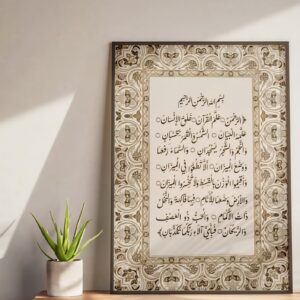 بسم الله الرحمن الرحيم
﴿الرحمن ○ علم القرآن ○ خلق الإنسان ○
علمه البيان ○ الشمس والقمر بحسبان ○
والنجم والشجر يسجدان ○ والسماء رفعها
ووضع الميزان ○ ألا تطغوا في الميزان ○
وأقيموا الوزن بالقسط ولا تخسروا الميزان ○
والأرض وضعها للأنام ○ فيها فاكهة والنخل
ذات الأكمام ○ والحب ذو العصف
والريحان ○ فبأي آلاء ربكما تكذبان﴾